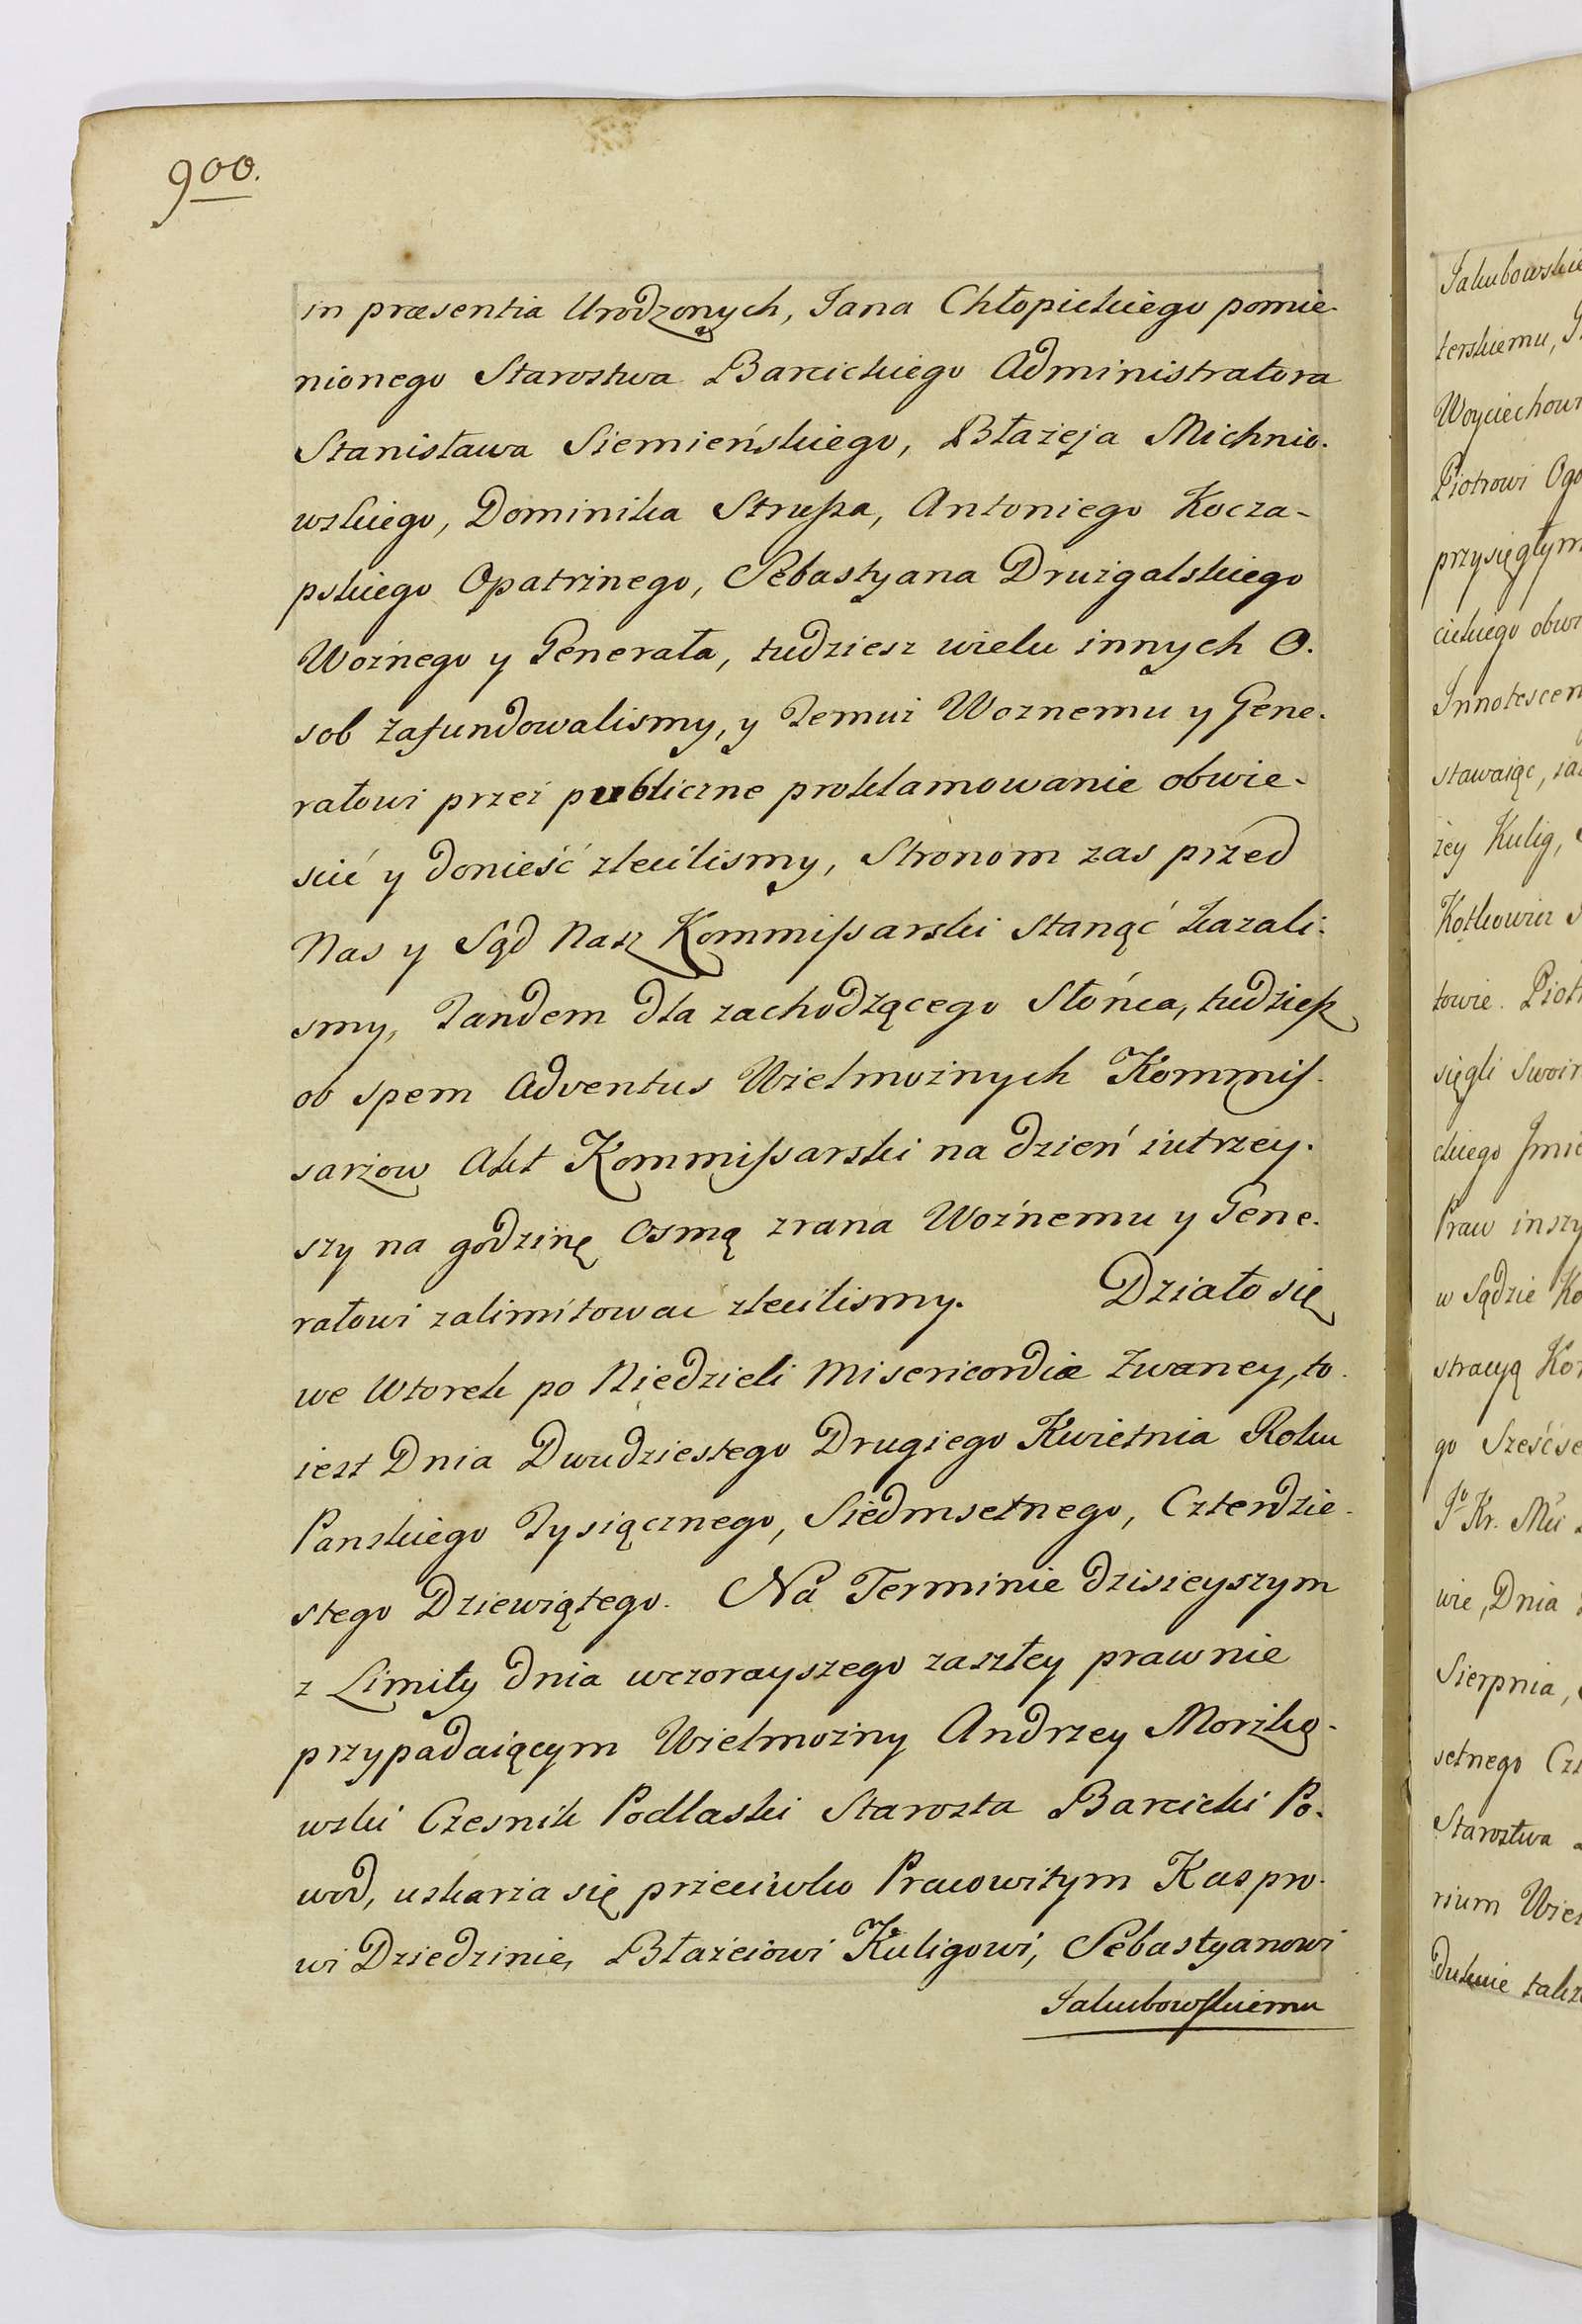 900.
in præsentia Urodzonych, Jana Chłopickiego pomie-
nionego Starostwa Barcickiego Administratora
Stanisława Siemieńskiego, Błażeja Michnio-
wskiego, Dominika Strußa, Antoniego Kocza-
pskiego Opatrznego, Sebastyana Drużgalskiego
Woźnego y Generała, tudziesz wielu innych O-
sob zafundowalismy, y Temuż Woznemu y Gene-
rałowi przez publiczne proklamowanie obwie-
scić y donieść zlecilismy, Stronom zas przed
Nas y Sąd Nasz Kommißarski Stanąć kazali-
smy, Tandem dla zachodzącego Słońca, tudzieß
ob spem Adventus Wielmożnych Kommis-
sarzow Akt Kommißarski na dzień iutrzey-
szy na godzinę Osmą zrana Woźnemu y Gene-
rałowi zalimitowac zlecilismy. Działo się
we Wtorek po Niedzieli Misericordiæ Zwaney, to
iest Dnia Dwudziestego Drugiego Kwietnia Roku
Panskiego Tysiącznego, Siedmsetnego, Czterdzie-
stego Dziewiątego. Na Terminie dzisieyszym
z Limity dnia wczorayszego zaszłey prawnie
przypadaiącym Wielmożny Andrzey Morzko-
wski Czesnik Podlaski Starosta Barcicki Po-
wod, uskarza się przeciwko Pracowitym Kaspro-
wi Dziedzinie, Błażeiowi Kuligowi, Sebastyanowi
Jakubowskiemu
Jakubowskie
terskiemu,
Woyciechow
Piotrowi Ogo
przysięgłym
cickiego obw
Innotescen
stawaiąc,
żey Kulig,
Kotkowicz
towie. Piotr
sięgli Swoi
ckiego Jmie
Praw inszy
w Sądzie Ko
stracyą Ko
go Sześćse
wie, Dnia
Sierpnia,
setnego Cz
Starostwa
rium Wie